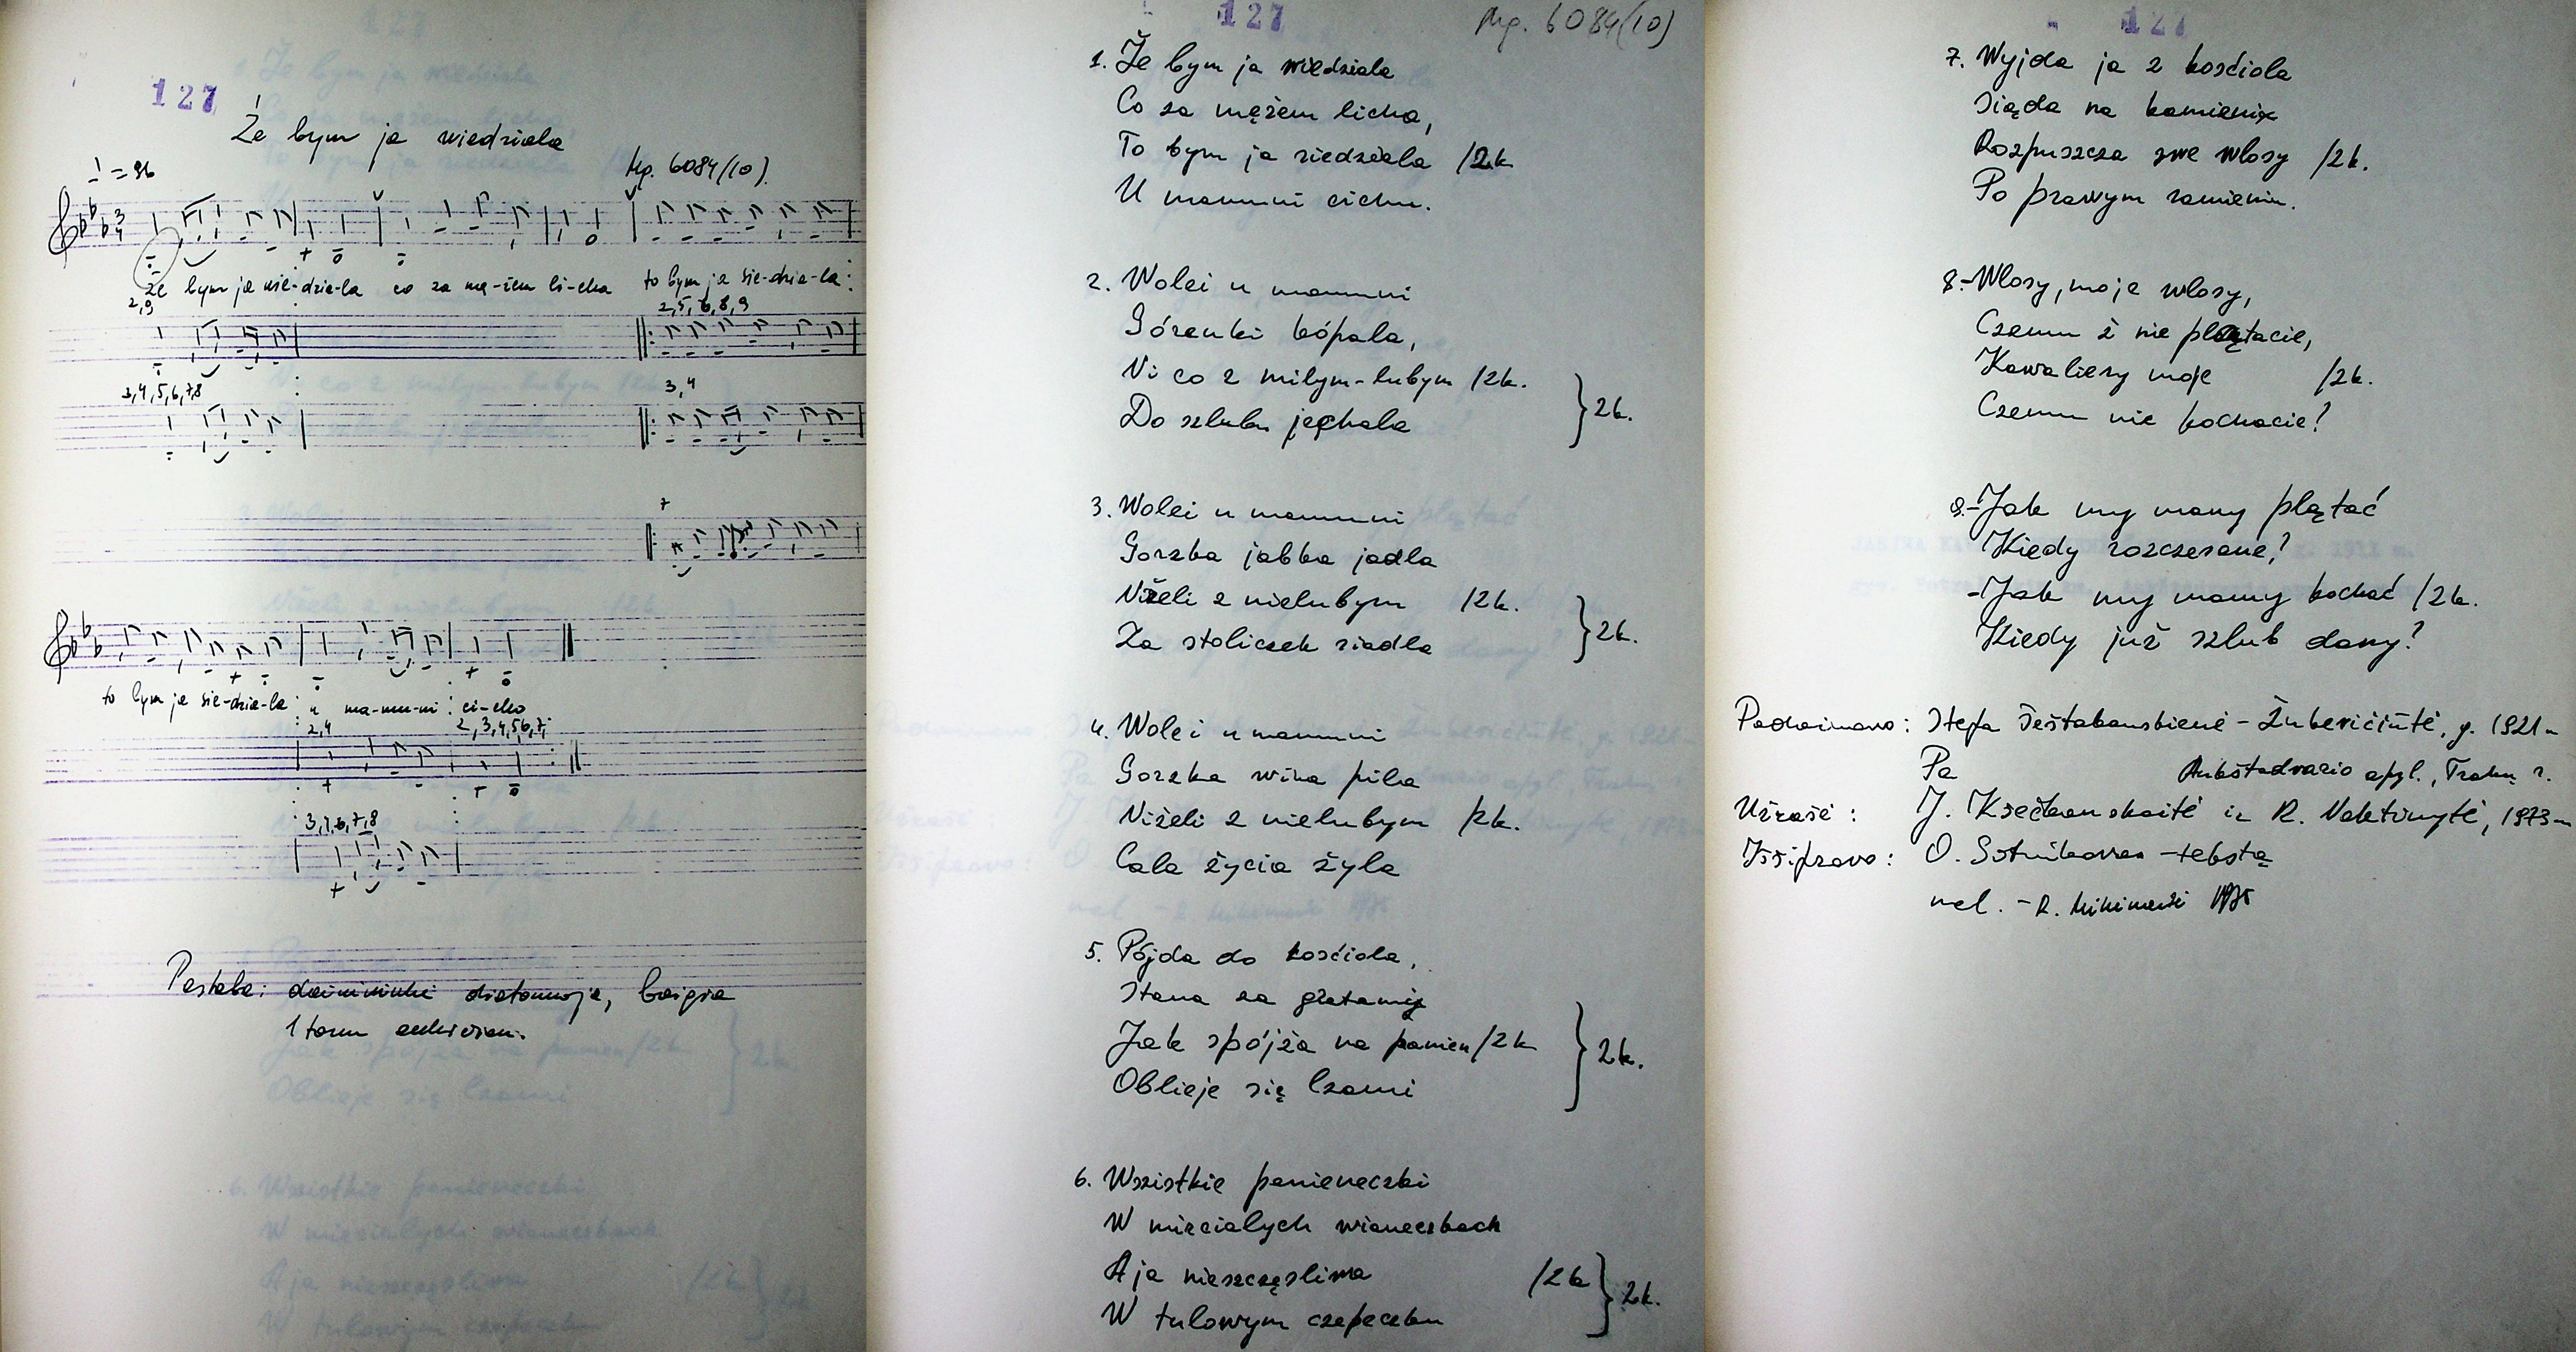 127
Że bym ja wiedziała
♩ = 96
Mg. 6084 (10).
Że bym ja wie-dzia-ła co za mę-żem li-cha to bym ja sie-dzia-ła:
2,9
2,5,6,8,9
3,4,5,6,7,8
3,4
7
to bym ja sie-dzia-ła u ma-mu-ni ci-cho
2,4
2,3,4,5,6,7
Pastaba: dainininkė distonuoja, baigia
1 tonu
127
Mg. 6084 (10)
1. Że bym ja wiedziala
Co za mężem licho,
To bym ja siedziala /2k
U mamuni cichu.
2. Wolei u mamuni
Górenki kópala,
Ni co z milym-lubym /2k.
Do szlubu jechala
}2k.
3. Wolei u mamuni
Gorzka jabka jadla
Niżeli z nielubym /2k.
Za stoliczek siadla
}2k.
4. Wolei u mamuni
Gorzka wina pila
Niżeli z nielubym /2k.
Cala życia żyla
5. Pójda do kościola,
Stana za gratamy
Jak spójża na panien /2k
Oblieje się lzami
}2k.
6. Wszistkie panieneczki
W mirzialych wianeczkach
A ja nieszczęsliwa /2k
W tulowym czepeczku
}2k.
127
7. Wyjda ja z kościola
Siąda na kamieniu
Rozpuszcza swe wlosy /2k.
Po prawym ramieniu.
8.-Wlosy, moje wlosy,
Czemu ż nie plątacie,
Kawaliery moje /2k.
Czemu nie kochacie?
9.-Jak my mamy plątać
Kiedy rozczesane?
-Jak my mamy kochać /2k.
Kiedy już szlub dany?
Padainavo: Stefa Šeštakauskienė - Žukevičiūtė, g. 1921 m
Pa Aukštadvario apyl., Trakų r.
Užrašė: J. Krečkauskaitė ir R. Naktinytė, 1973 m
Išsifravo: O. Sotnikovas - tekstą
mel. - R. 1975